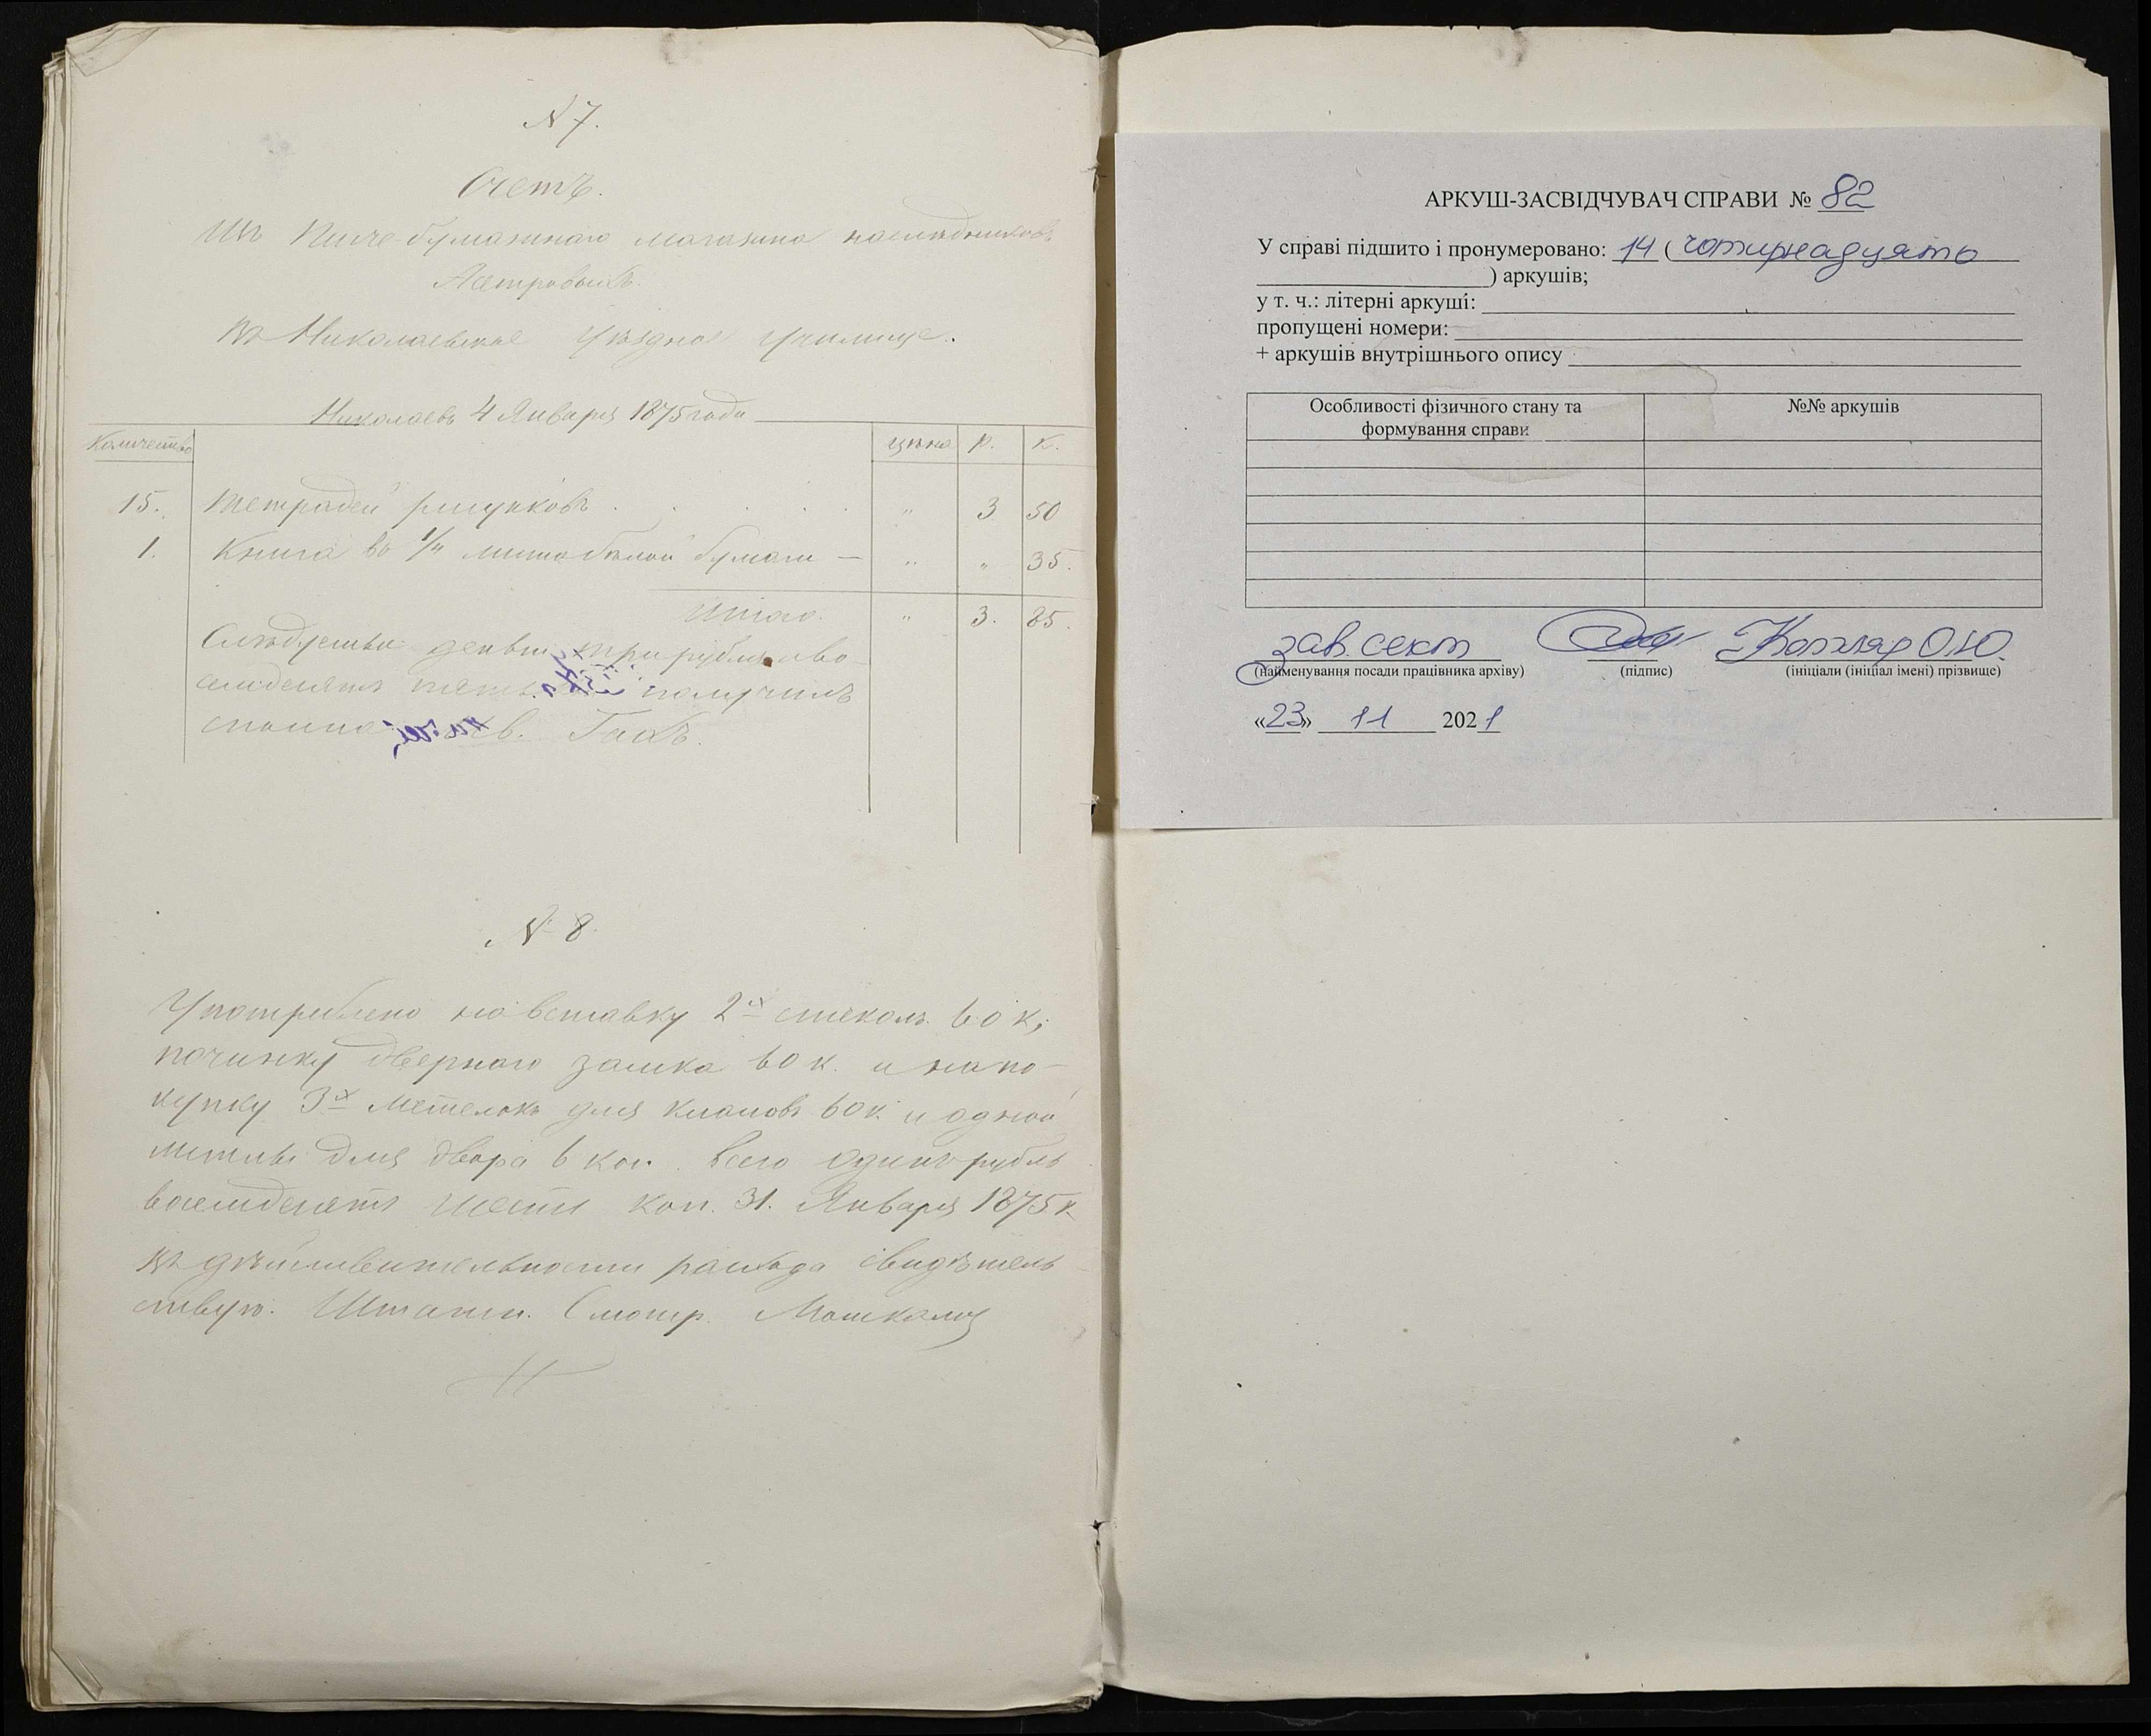 N 7.
Счетъ.
Изъ Писче-бумажнаго магазина наслѣдниковъ
Въ Николаевское Уѣздное Училище.
Николаевъ 4 Января 1875 года
Количество цѣна Р. К.
15. Тетрадей рисунковъ . . . . . " 3 50
1. Книга въ 1/4 листа бѣлой бумаги — " " 35.
Итого. " 3. 85.
Слѣдуемыя деньги три рубля во-
семдесятъ пять получилъ
сполна
N 8.
Употреблено на вставку 2х стеколъ 60 к;
починку двернаго замка 60 к. и на по-
купку 3х метелокъ для класовъ 60 к. и одной
метлы для двора 6 коп. всего одинъ рубль
восемдесятъ шесть коп. 31. Января 1875 г.
Въ дѣйствительности расхода свидѣтель-
ствую. Штатн. Смотр.
АРКУШ-ЗАСВІДЧУВАЧ СПРАВИ № 82
У справі підшито і пронумеровано: 14 ( чотирнадцять
) аркушів;
у т. ч.: літерні аркуші:
пропущені номери:
+ аркушів внутрішнього опису
Особливості фізичного стану та
формування справи
№№ аркушів
зав. сект Котляр О.Ю.
(найменування посади працівника архіву) (підпис) (ініціали (ініціал імені) прізвище)
«23» 11 2021